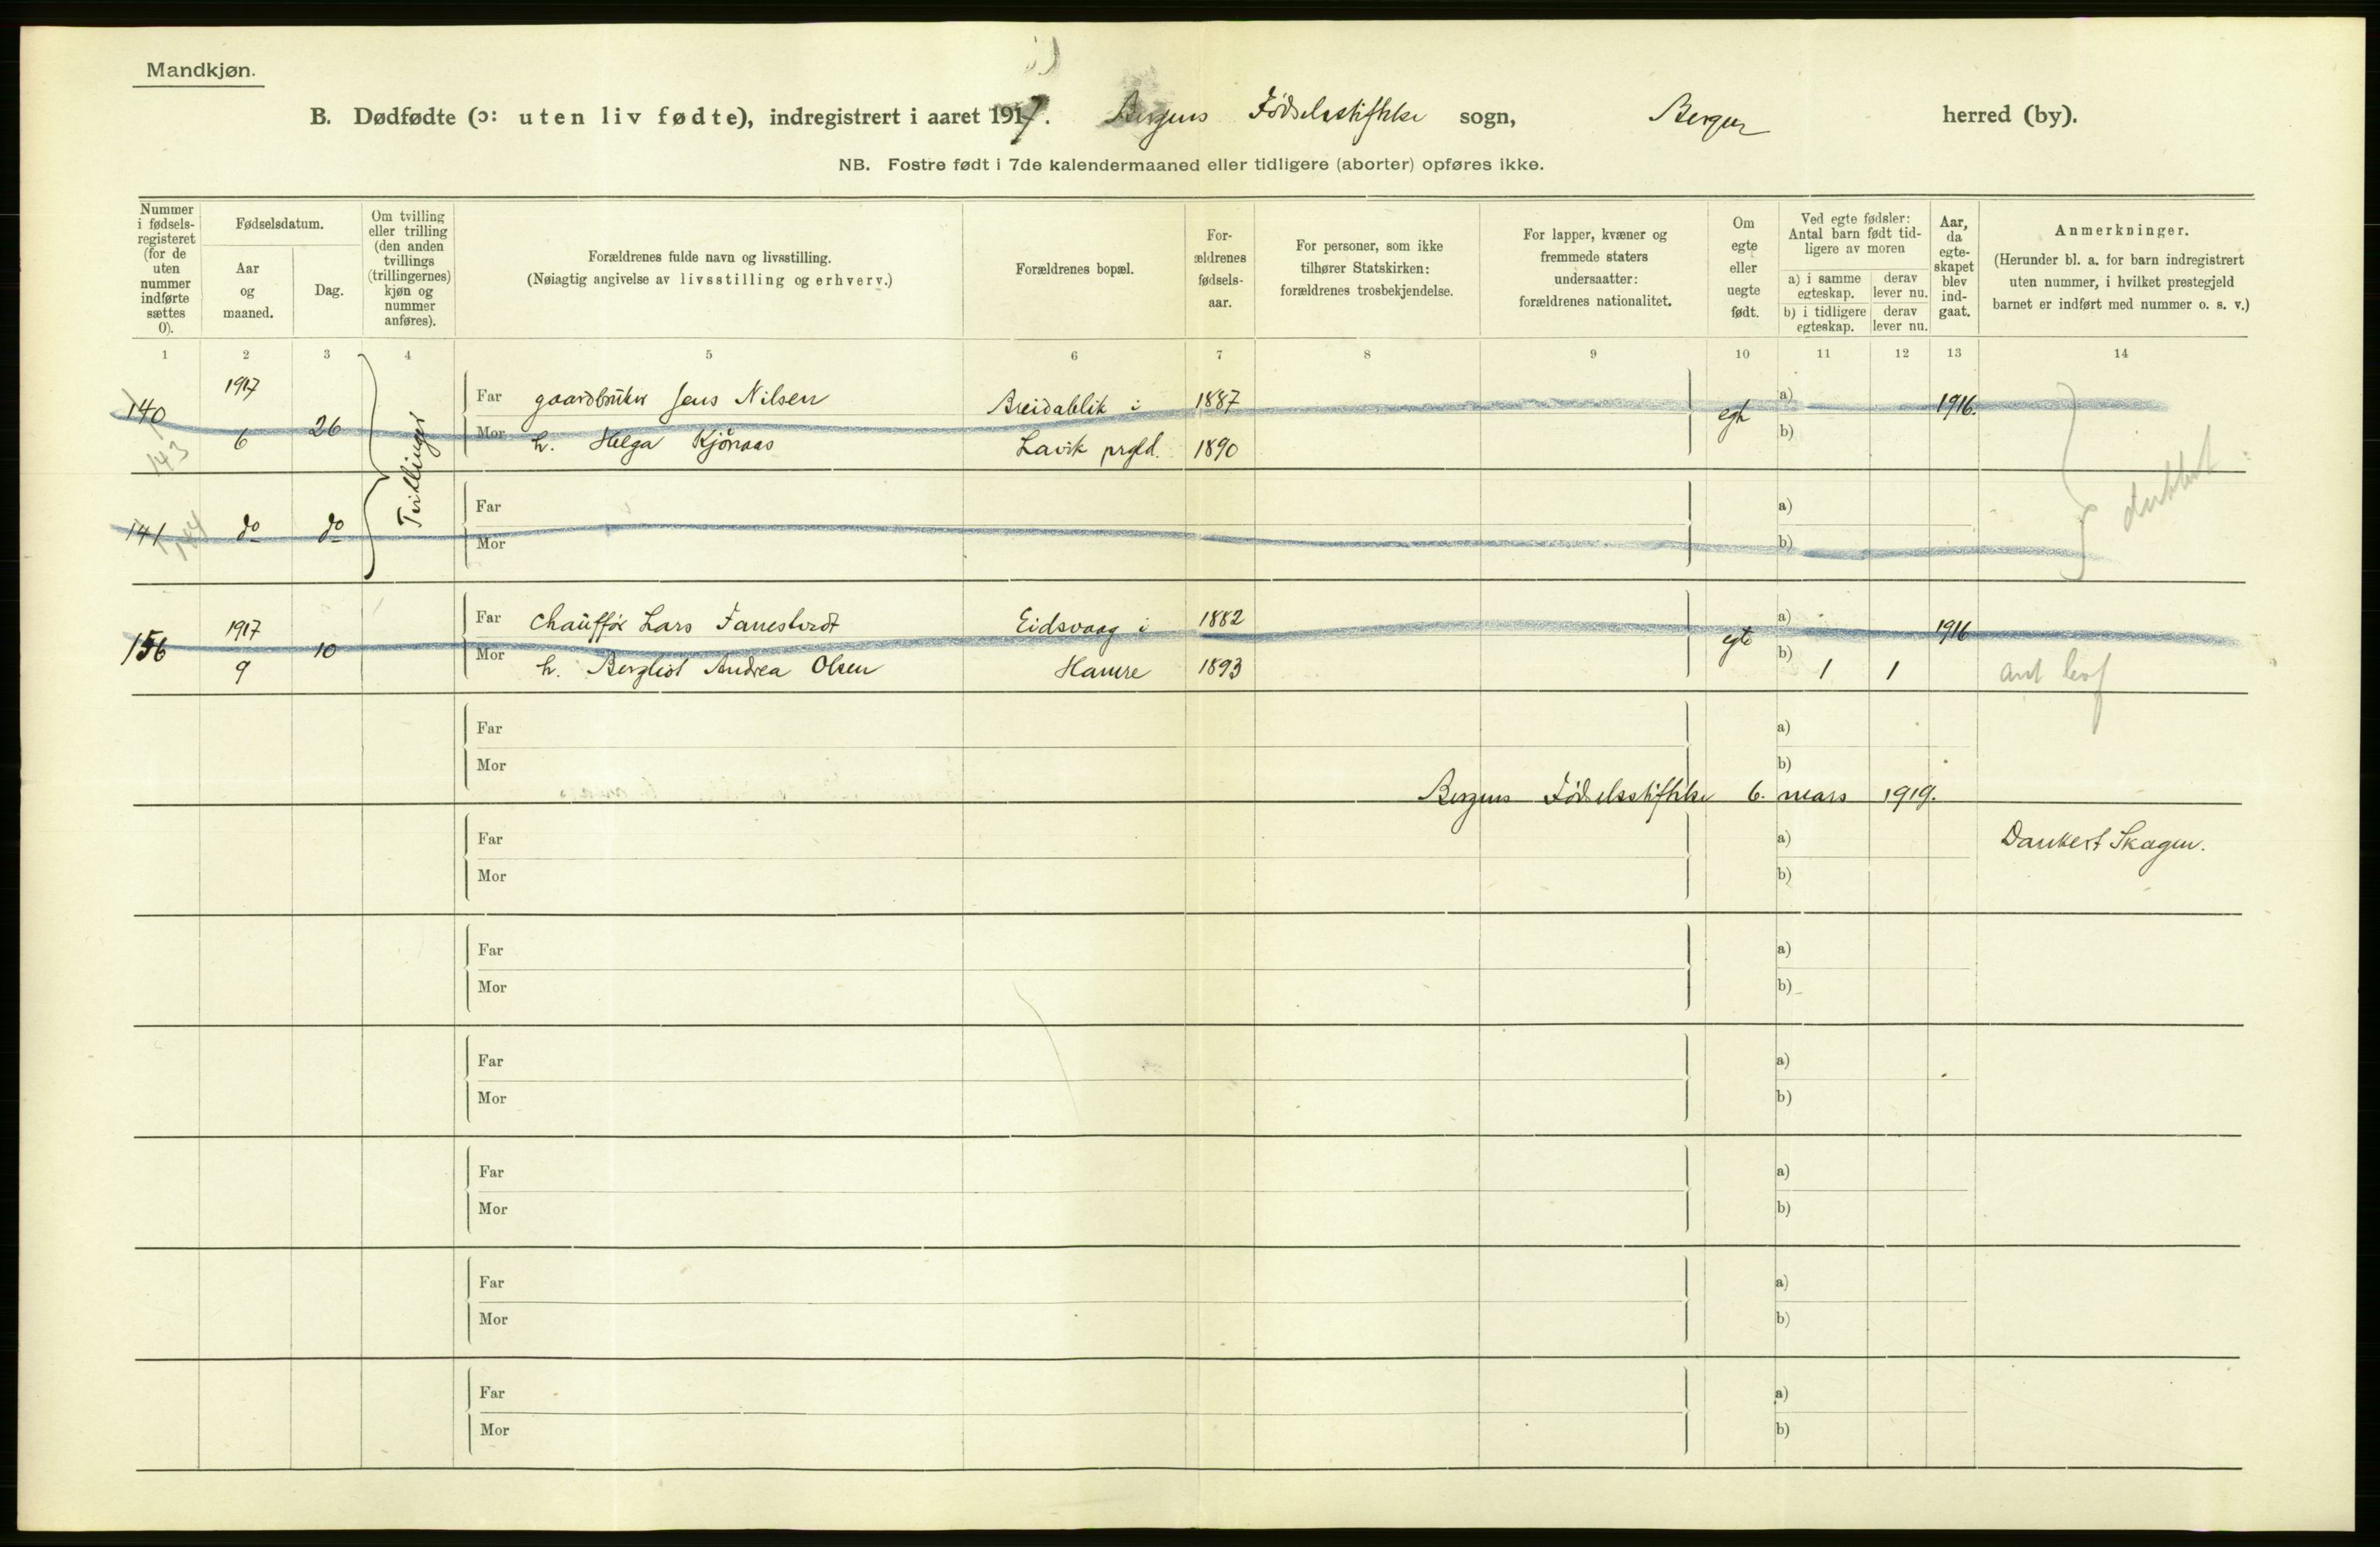 Mandkjøn.
B. Dødfødte (ɔ: uten liv fødte), indregistrert i aaret 1917. Bergens Fødselsstiftelse sogn, Bergen herred (by).
NB. Fostre født i 7de kalendermaaned eller tidligere (aborter) opføres ikke.
Nummer i fødsels-registeret (for de uten nummer indførte sættes 0).
Fødselsdatum.
Aar og maaned.
Dag.
Om tvilling eller trilling (den anden tvillings (trillingernes) kjøn og nummer anføres).
Forældrenes fulde navn og livsstilling.
(Nøiagtig angivelse av livsstilling og erhverv.)
Forældrenes bopæl.
For-ældrenes fødsels-aar.
For personer, som ikke tilhører Statskirken: forældrenes trosbekjendelse.
For lapper, kvæner og fremmede staters undersaatter: forældrenes nationalitet.
Om egte eller uegte født.
Ved egte fødsler: Antal barn født tid-ligere av moren
a) i samme egteskap.
derav lever nu.
b) i tidligere egteskap.
derav lever nu.
Aar, da egte-skapet blev ind-gaat.
Anmerkninger.
(Herunder bl. a. for barn indregistrert uten nummer, i hvilket prestegjeld barnet er indført med nummer o. s. v.)
1 2 3 4 5 6 7 8 9 10 11 12 13 14
140 1917 6 26 Tvillinger Far gaardbruker Jens Nilsen Breidablik i 1887 a) 1916.
143 Mor h. Helga Kjönaas Lavik prgld. 1890 b)
141 do do Far a) dubblet
144 Mor b)
156 1917 9 10 Far Chaufför Lars Fanestvedt Eidsvaag i 1882 egte a) 1916
Mor h. Bergliot Andrea Olsen Hamre 1893 b) 1 1
Far a)
Mor b)
Bergens Fødselsstiftelse 6. mars 1919.
Far a) Dankert Skagen.
Mor b)
Far a)
Mor b)
Far a)
Mor b)
Far a)
Mor b)
Far a)
Mor b)
Far a)
Mor b)